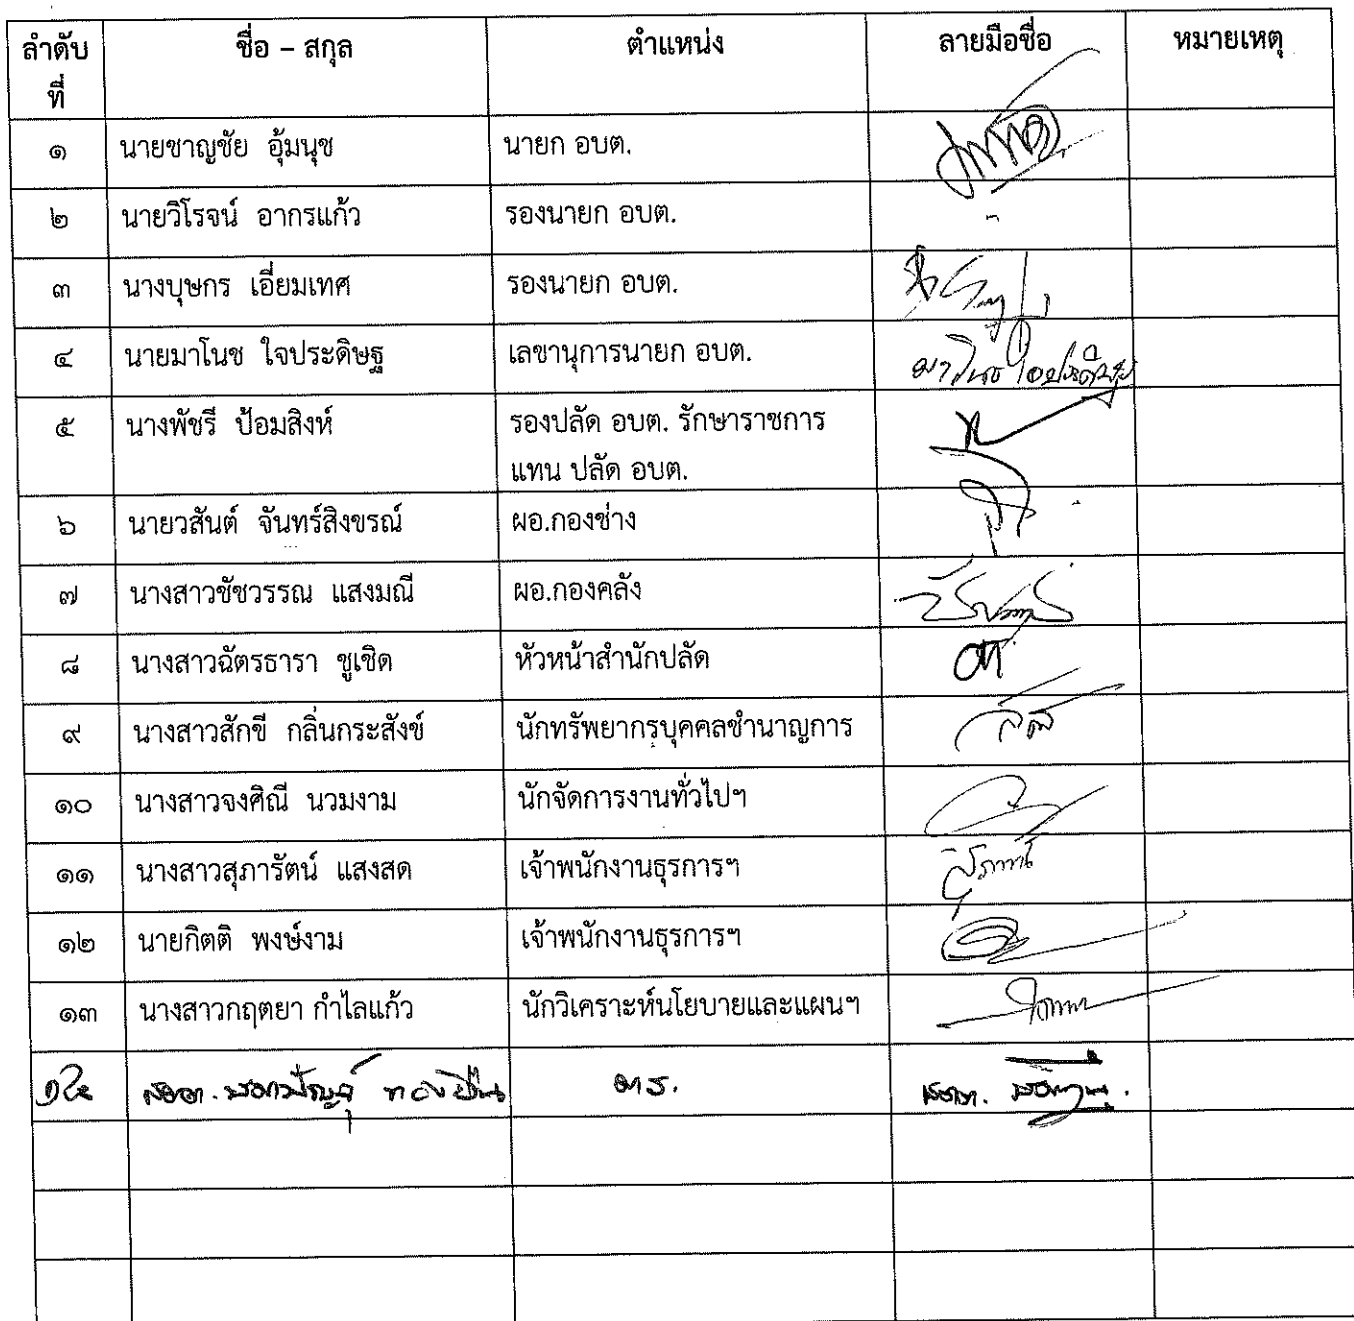 ลำดับที่ ชื่อ – สกุล ตำแหน่ง ลายมือชื่อ หมายเหตุ
๑ นายชาญชัย อุ้มนุช นายก อบต.
๒ นายวิโรจน์ อากรแก้ว รองนายก อบต. -
๓ นางบุษกร เอี่ยมเทศ รองนายก อบต.
๔ นายมาโนช ใจประดิษฐ เลขานุการนายก อบต. มาโนช ใจประดิษฐ
๕ นางพัชรี ป้อมสิงห์ รองปลัด อบต. รักษาราชการ
แทน ปลัด อบต.
๖ นายวสันต์ จันทร์สิงขรณ์ ผอ.กองช่าง
๗ นางสาวชัชวรรณ แสงมณี ผอ.กองคลัง
๘ นางสาวฉัตรธารา ชูเชิด หัวหน้าสำนักปลัด
๙ นางสาวสักขี กลิ่นกระสังข์ นักทรัพยากรบุคคลชำนาญการ
๑๐ นางสาวจงศิณี นวมงาม นักจัดการงานทั่วไปฯ
๑๑ นางสาวสุภารัตน์ แสงสด เจ้าพนักงานธุรการฯ สุภารัตน์
๑๒ นายกิตติ พงษ์งาม เจ้าพนักงานธุรการฯ
๑๓ นางสาวกฤตยา กำไลแก้ว นักวิเคราะห์นโยบายและแผนฯ
๑๔